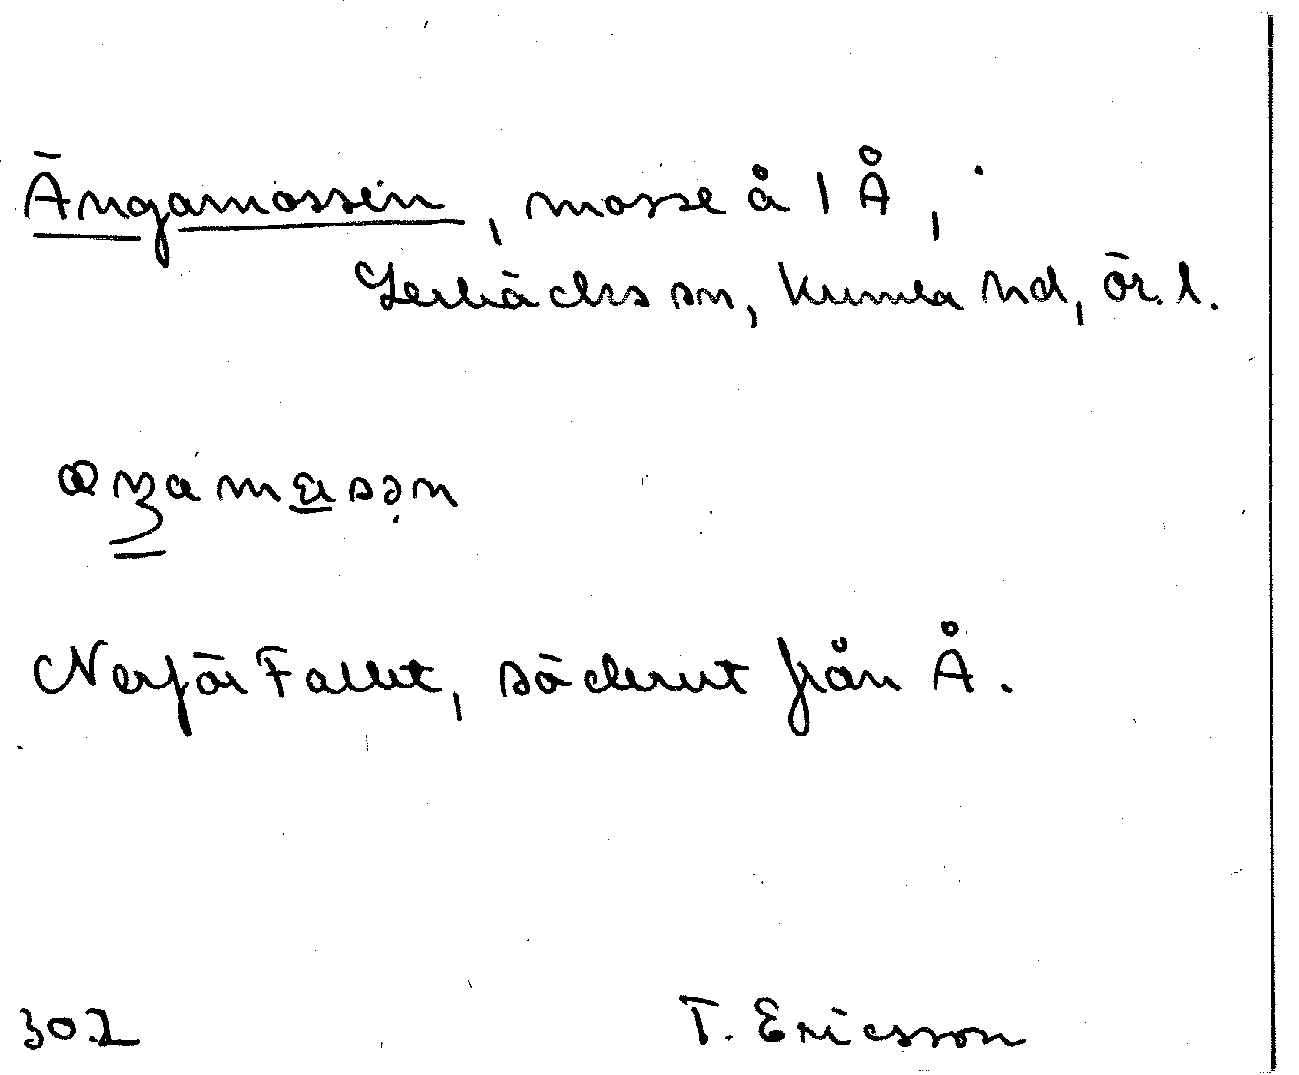 Ängamossen, mosse å 1 Å,
Lerbäcks sn, Kumla hd, ör. l.
Nerför Fallet, söderut från Å.
302
T. Ericsson